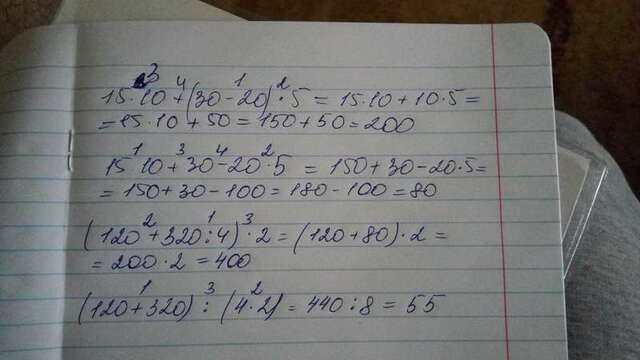 3 4 1 2
15·10+(30-20)·5=15·10+10·5=
=15·10+50=150+50=200
1 3 4 2
15·10+30-20·5=150+30-20·5=
=150+30-100=180-100=80
2 1 3
(120+320:4)·2=(120+80)·2=
=200·2=400
1 3 2
(120+320):(4·2)=440:8=55